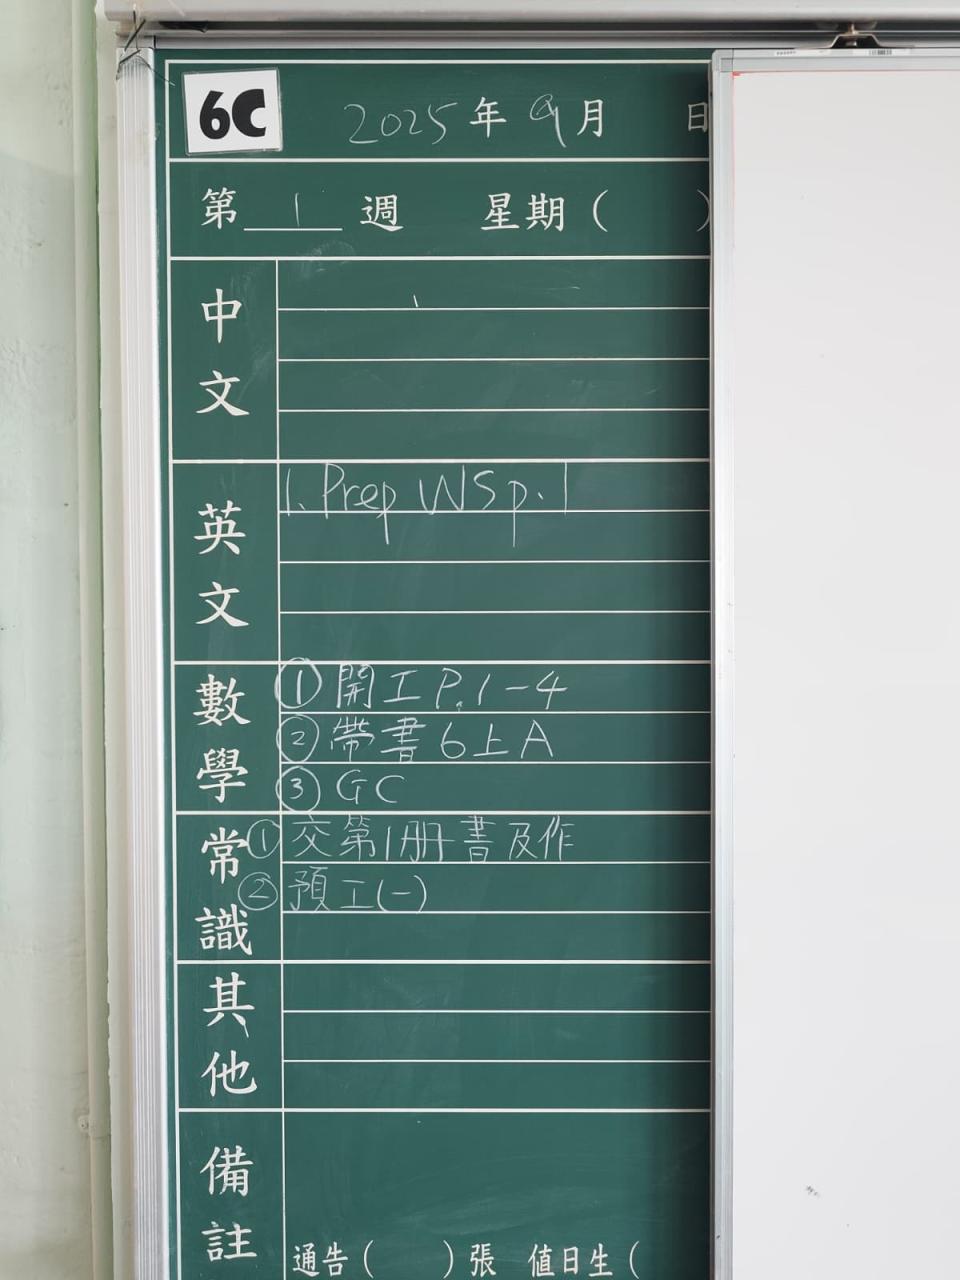 6C
2025年9月 日
第 1 週 星期( )
中文
英文
1. Prep WS p.1
數學
① 開工 P.1-4
② 帶書 6上A
③ GC
常識
① 交第1冊書及作
② 預工(一)
其他
備註
通告( )張 值日生(